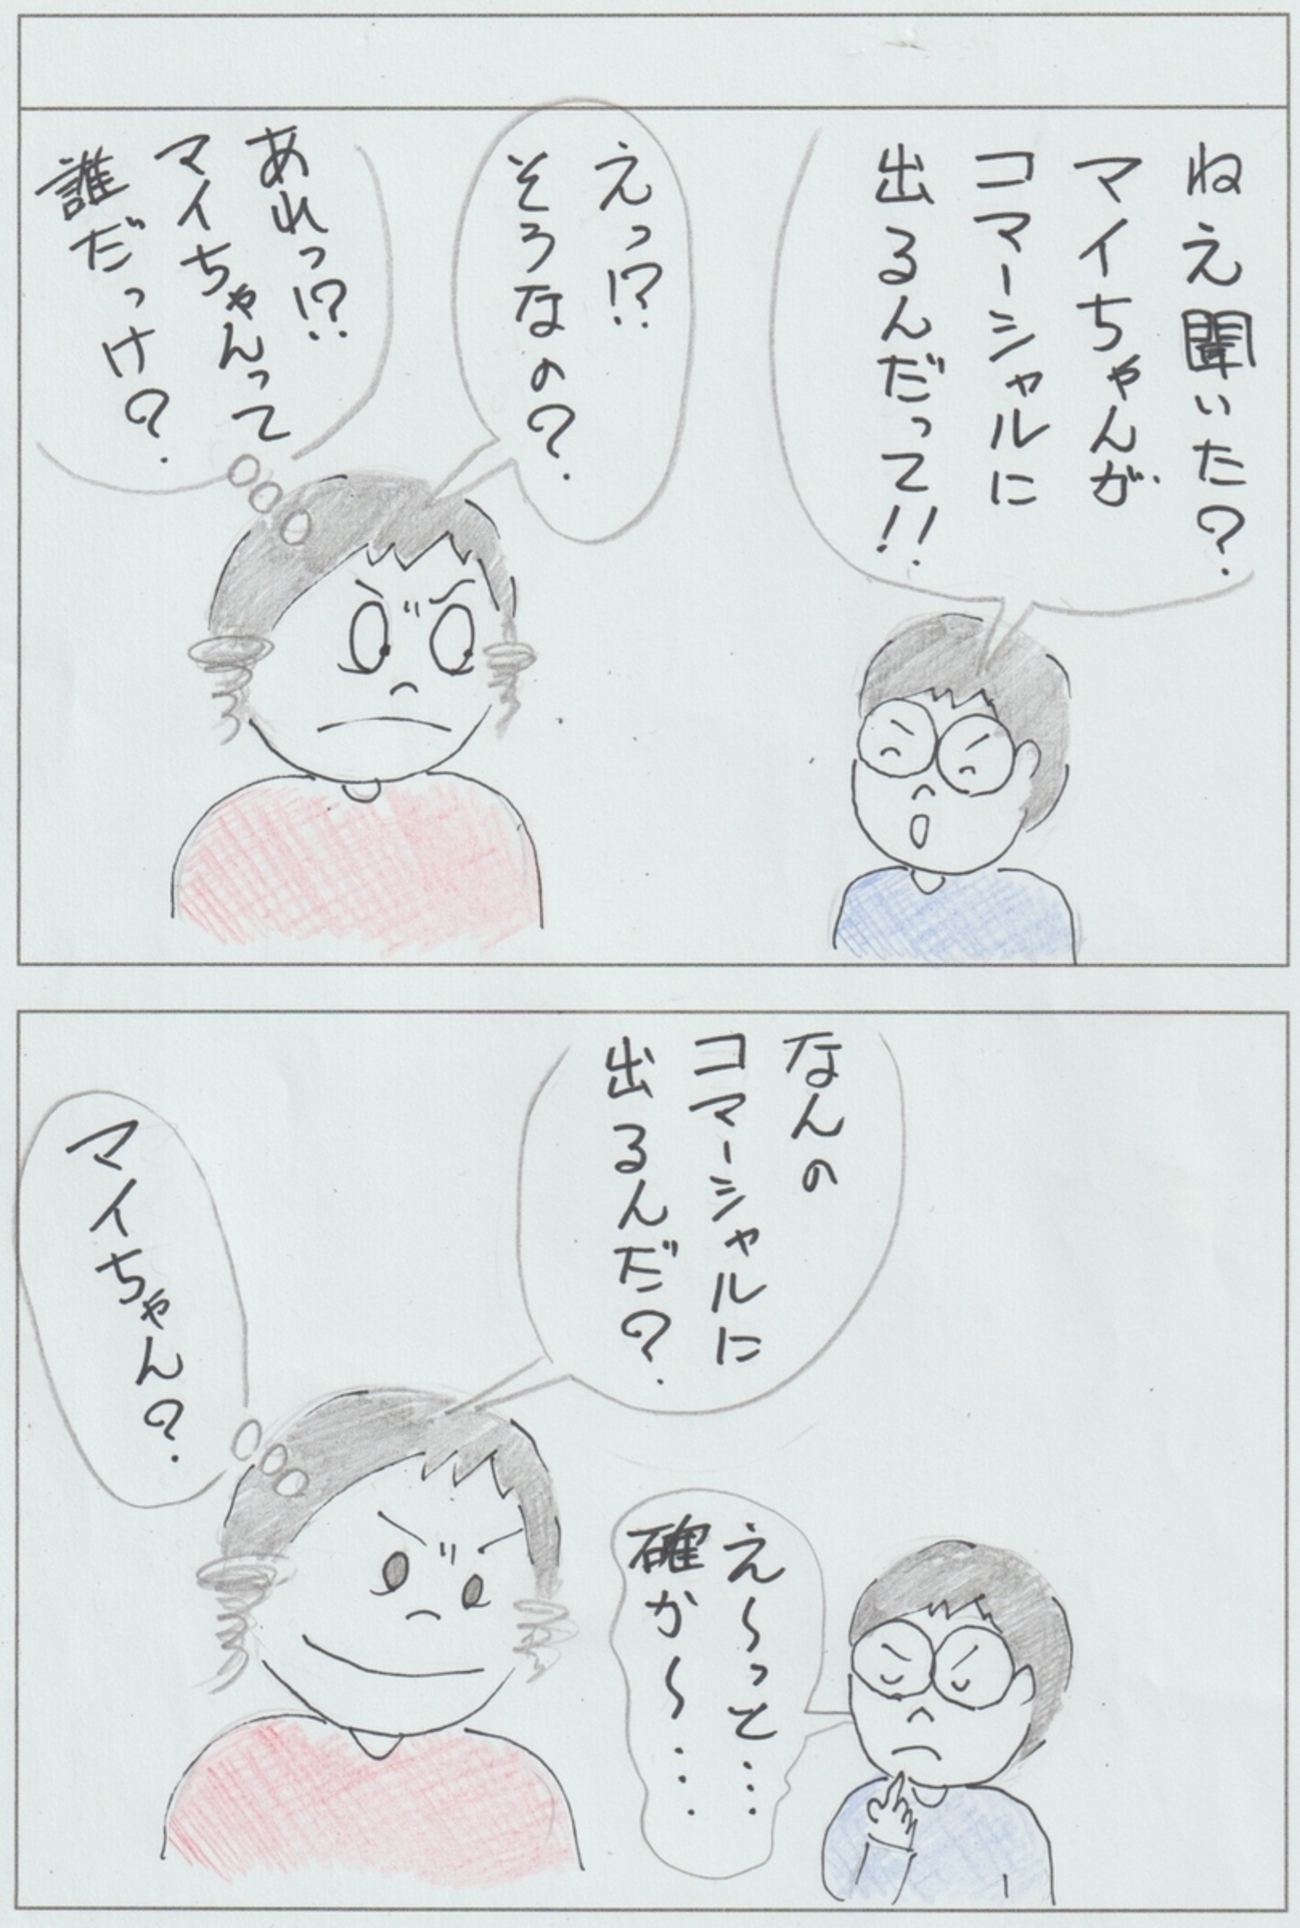 ねえ聞いた?
マイちゃんが
コマーシャルに
出るんだって!!
えっ!?
そうなの?
あれっ!?
マイちゃんって
誰だっけ?
なんの
コマーシャルに
出るんだ?
マイちゃん?
え〜って…
確か〜…